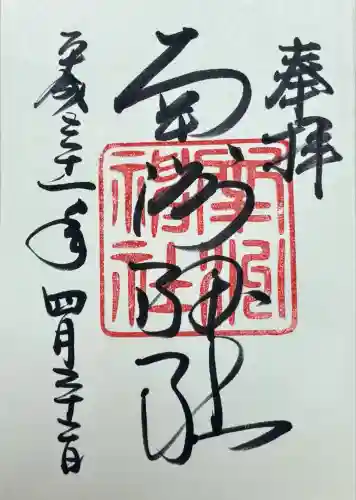 奉拝
南洲神社
平成三十一年四月二十二日
南洲
神社